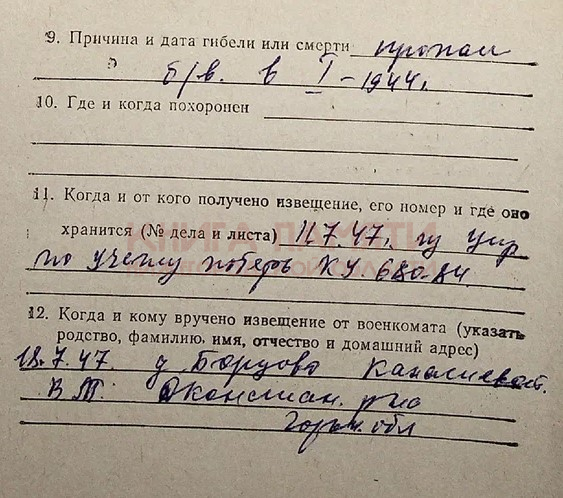 9. Причина и дата гибели или смерти пропал
б/в. в I-1944г.
10. Где и когда похоронен
11. Когда и от кого получено извещение, его номер и где оно
хранится (№ дела и листа) 11.7.47. гу упр
КНИГА ПАМЯТИ
по учету потерь КУ 680-84
12. Когда и кому вручено извещение от военкомата (указать
родство, фамилию, имя, отчество и домашний адрес)
18.7.47. д Борцово
В.Т. р-на
Горьк. обл